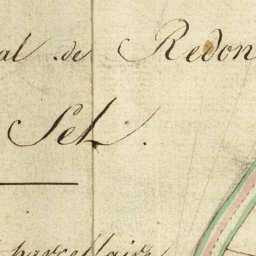 al de Redon
Sel.
parcellaire